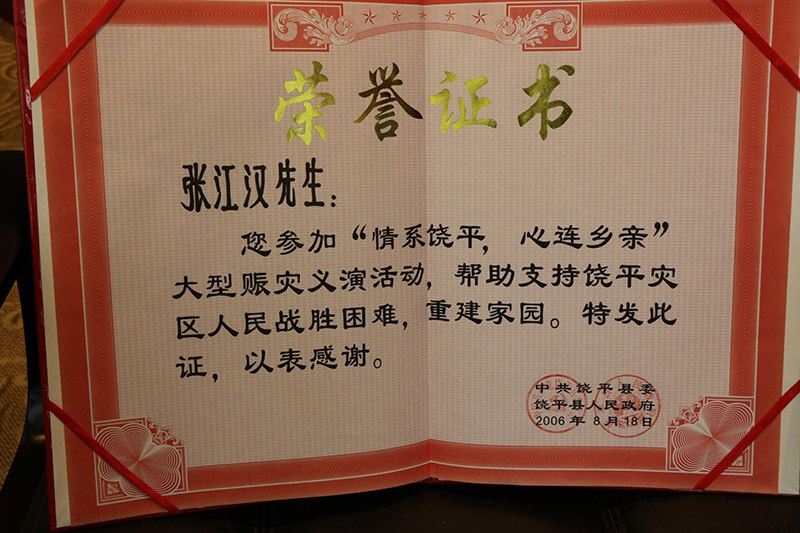 荣誉证书
张江汉先生：
您参加“情系饶平，心连乡亲”
大型赈灾义演活动，帮助支持饶平灾
区人民战胜困难，重建家园。特发此
证，以表感谢。
中共饶平县委
饶平县人民政府
2006 年 8 月 18 日